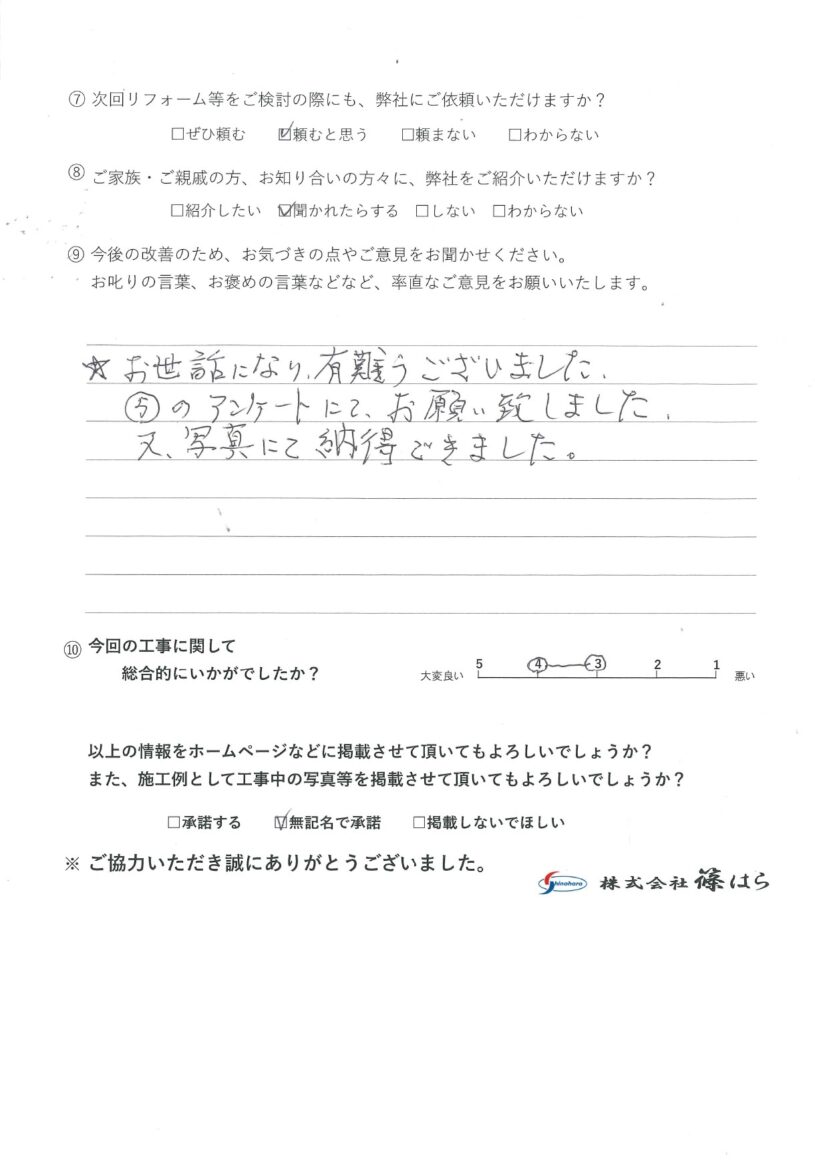 ⑦ 次回リフォーム等をご検討の際にも、弊社にご依頼いただけますか？
□ぜひ頼む ☑頼むと思う □頼まない □わからない
⑧ ご家族・ご親戚の方、お知り合いの方々に、弊社をご紹介いただけますか？
□紹介したい ☑聞かれたらする □しない □わからない
⑨ 今後の改善のため、お気づきの点やご意見をお聞かせください。
お叱りの言葉、お褒めの言葉などなど、率直なご意見をお願いいたします。
☆ お世話になり、有難うございました、
⑤のアンケートにて、お願い致しました、
又、写真にて納得できました。
⑩ 今回の工事に関して
総合的にいかがでしたか？
大変良い 5 4 3 2 1 悪い
以上の情報をホームページなどに掲載させて頂いてもよろしいでしょうか？
また、施工例として工事中の写真等を掲載させて頂いてもよろしいでしょうか？
□承諾する ☑無記名で承諾 □掲載しないでほしい
※ ご協力いただき誠にありがとうございました。
Shinohara 株式会社 篠はら